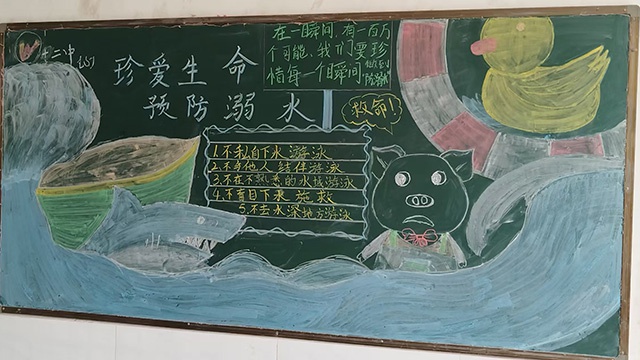 在一瞬间,有一百万
个可能,我们要珍
惜每一个瞬间
珍爱生命
预防溺水
救命!
1.不私自下水游泳
2.不与他人结伴游泳
3.不在不熟悉的水域游泳
4.不盲目下水施救
5.不去水深地方游泳